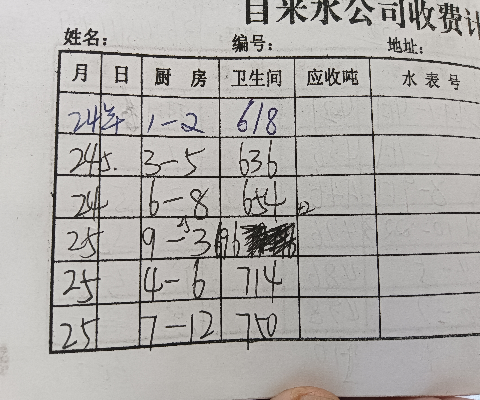 自来水公司收费计
姓名： 编号： 地址：
月 日 厨 房 卫生间 应收吨 水 表 号
24年 1-2 618
24 5. 3-5 636
24 6-8 654
25 9-3 696
25 4-6 714
25 7-12 750